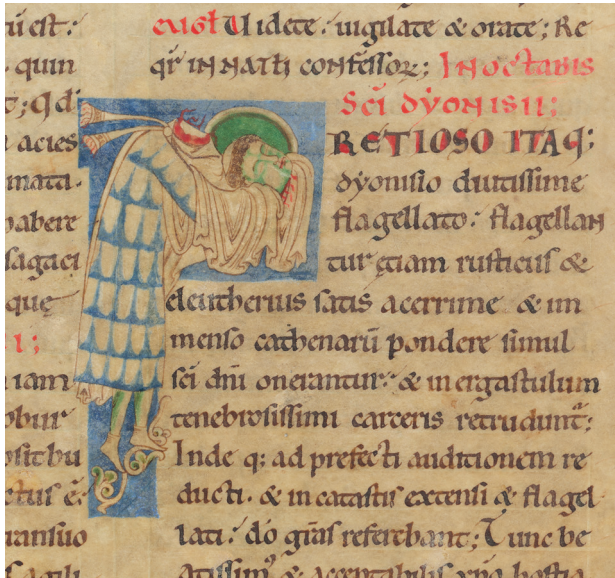 ui est:
quin
t; qd
acies
mata.
habere
sagaci
que
1;
iam
obur
ositbu
ctus ē.
ransiuo
euḡłu Uidete. uigilate & orate; Re
qr̄ IN NATŁ confessoꝝ; IN OCTABIS
SCI DYONISII;
PRETIOSO ITAQ;
dyonisio diutissime
flagellato. flagellan
tur etiam rusticus &
eleutherius satis acerrime & im
menso cathenarū pondere simul
sc̄i dn̄i onerantur. & in ergastulum
tenebrosissimi carceris retrudunt̄.
Inde q; ad prefecti auditionem re
ducti. & in catastis extensi & flagel
lati. dō gr̄as referebant; Tunc be